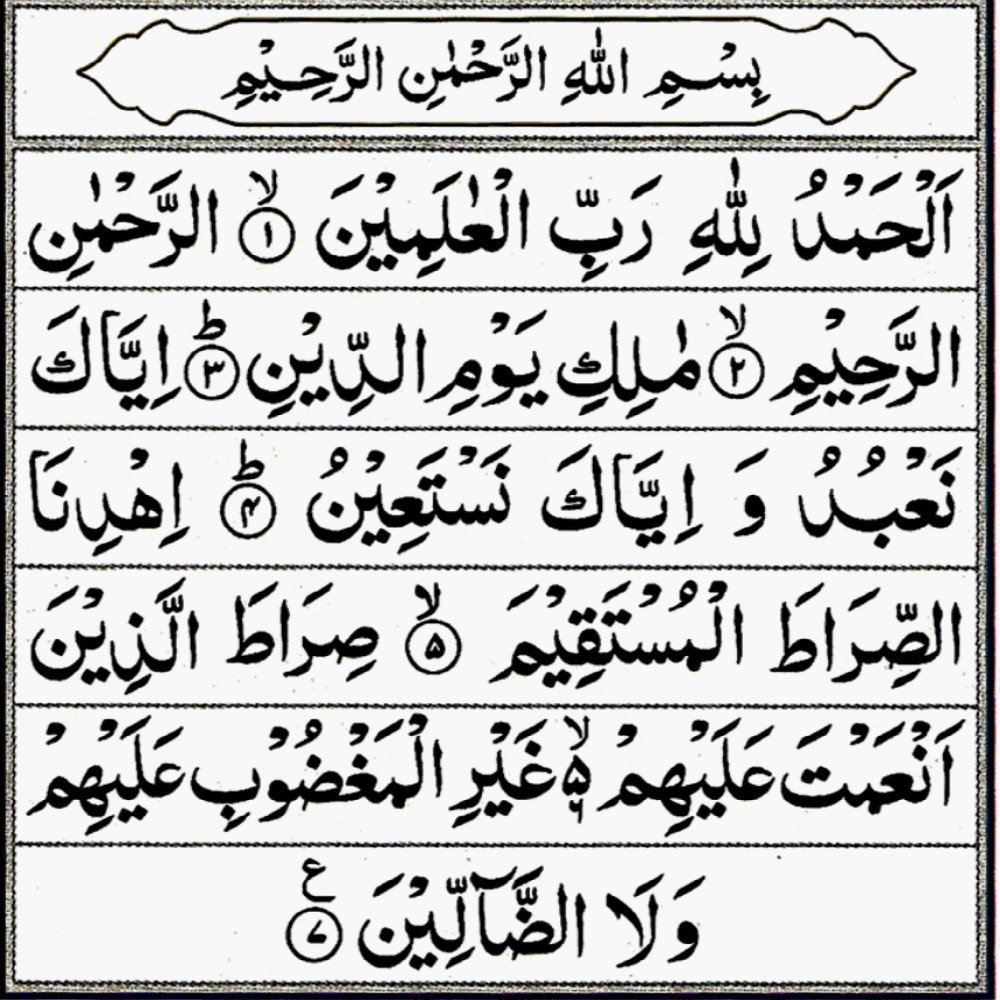 بِسْمِ اللهِ الرَّحْمٰنِ الرَّحِيْمِ
اَلْحَمْدُ لِلّٰهِ رَبِّ الْعٰلَمِيْنَ ۙ﴿۱﴾ الرَّحْمٰنِ
الرَّحِيْمِ ۙ﴿۲﴾ مٰلِكِ يَوْمِ الدِّيْنِ ؕ﴿۳﴾ اِيَّاكَ
نَعْبُدُ وَ اِيَّاكَ نَسْتَعِيْنُ ؕ﴿۴﴾ اِهْدِنَا
الصِّرَاطَ الْمُسْتَقِيْمَ ۙ﴿۵﴾ صِرَاطَ الَّذِيْنَ
اَنْعَمْتَ عَلَيْهِمْ ۙ۵ غَيْرِ الْمَغْضُوْبِ عَلَيْهِمْ
وَلَا الضَّآلِّيْنَ ﴿۷﴾ ع